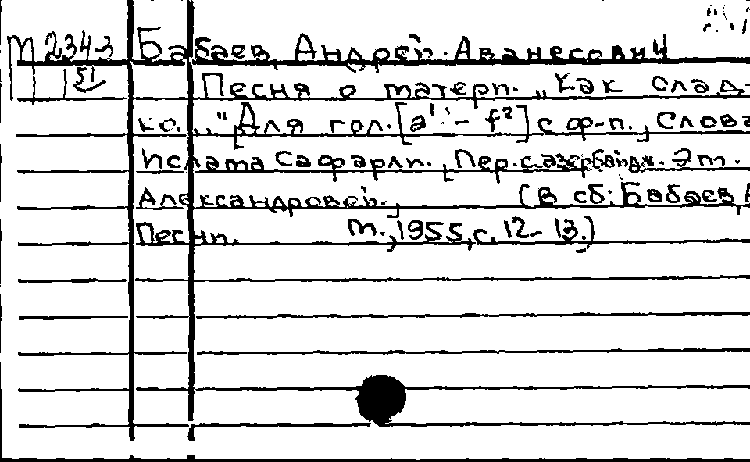 М 234-3 Бабаев, Андрей Аванесович
51 Песня о матери. „Как слад-
ко..." Для гол. [a¹ - f²] с ф-п., Слова
Ислама Сафарли., Пер. с азербайдж. Эт.
Александровой., (В сб: Бабаев, А
Песни. М., 1955, с. 12-13.)